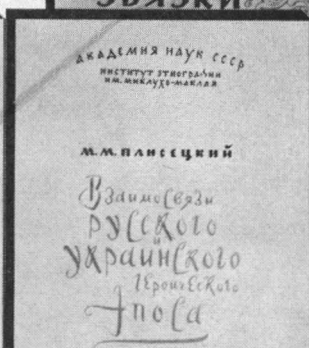 ЗВЯЗКИ
АКАДЕМИЯ НАУК СССР
ИНСТИТУТ ЭТНОГРАФИИ
ИМ. МИКЛУХО-МАКЛАЯ
М.М. ПЛИСЕЦКИЙ
Взаимосвязи
русского
и
украинского
героического
эпоса